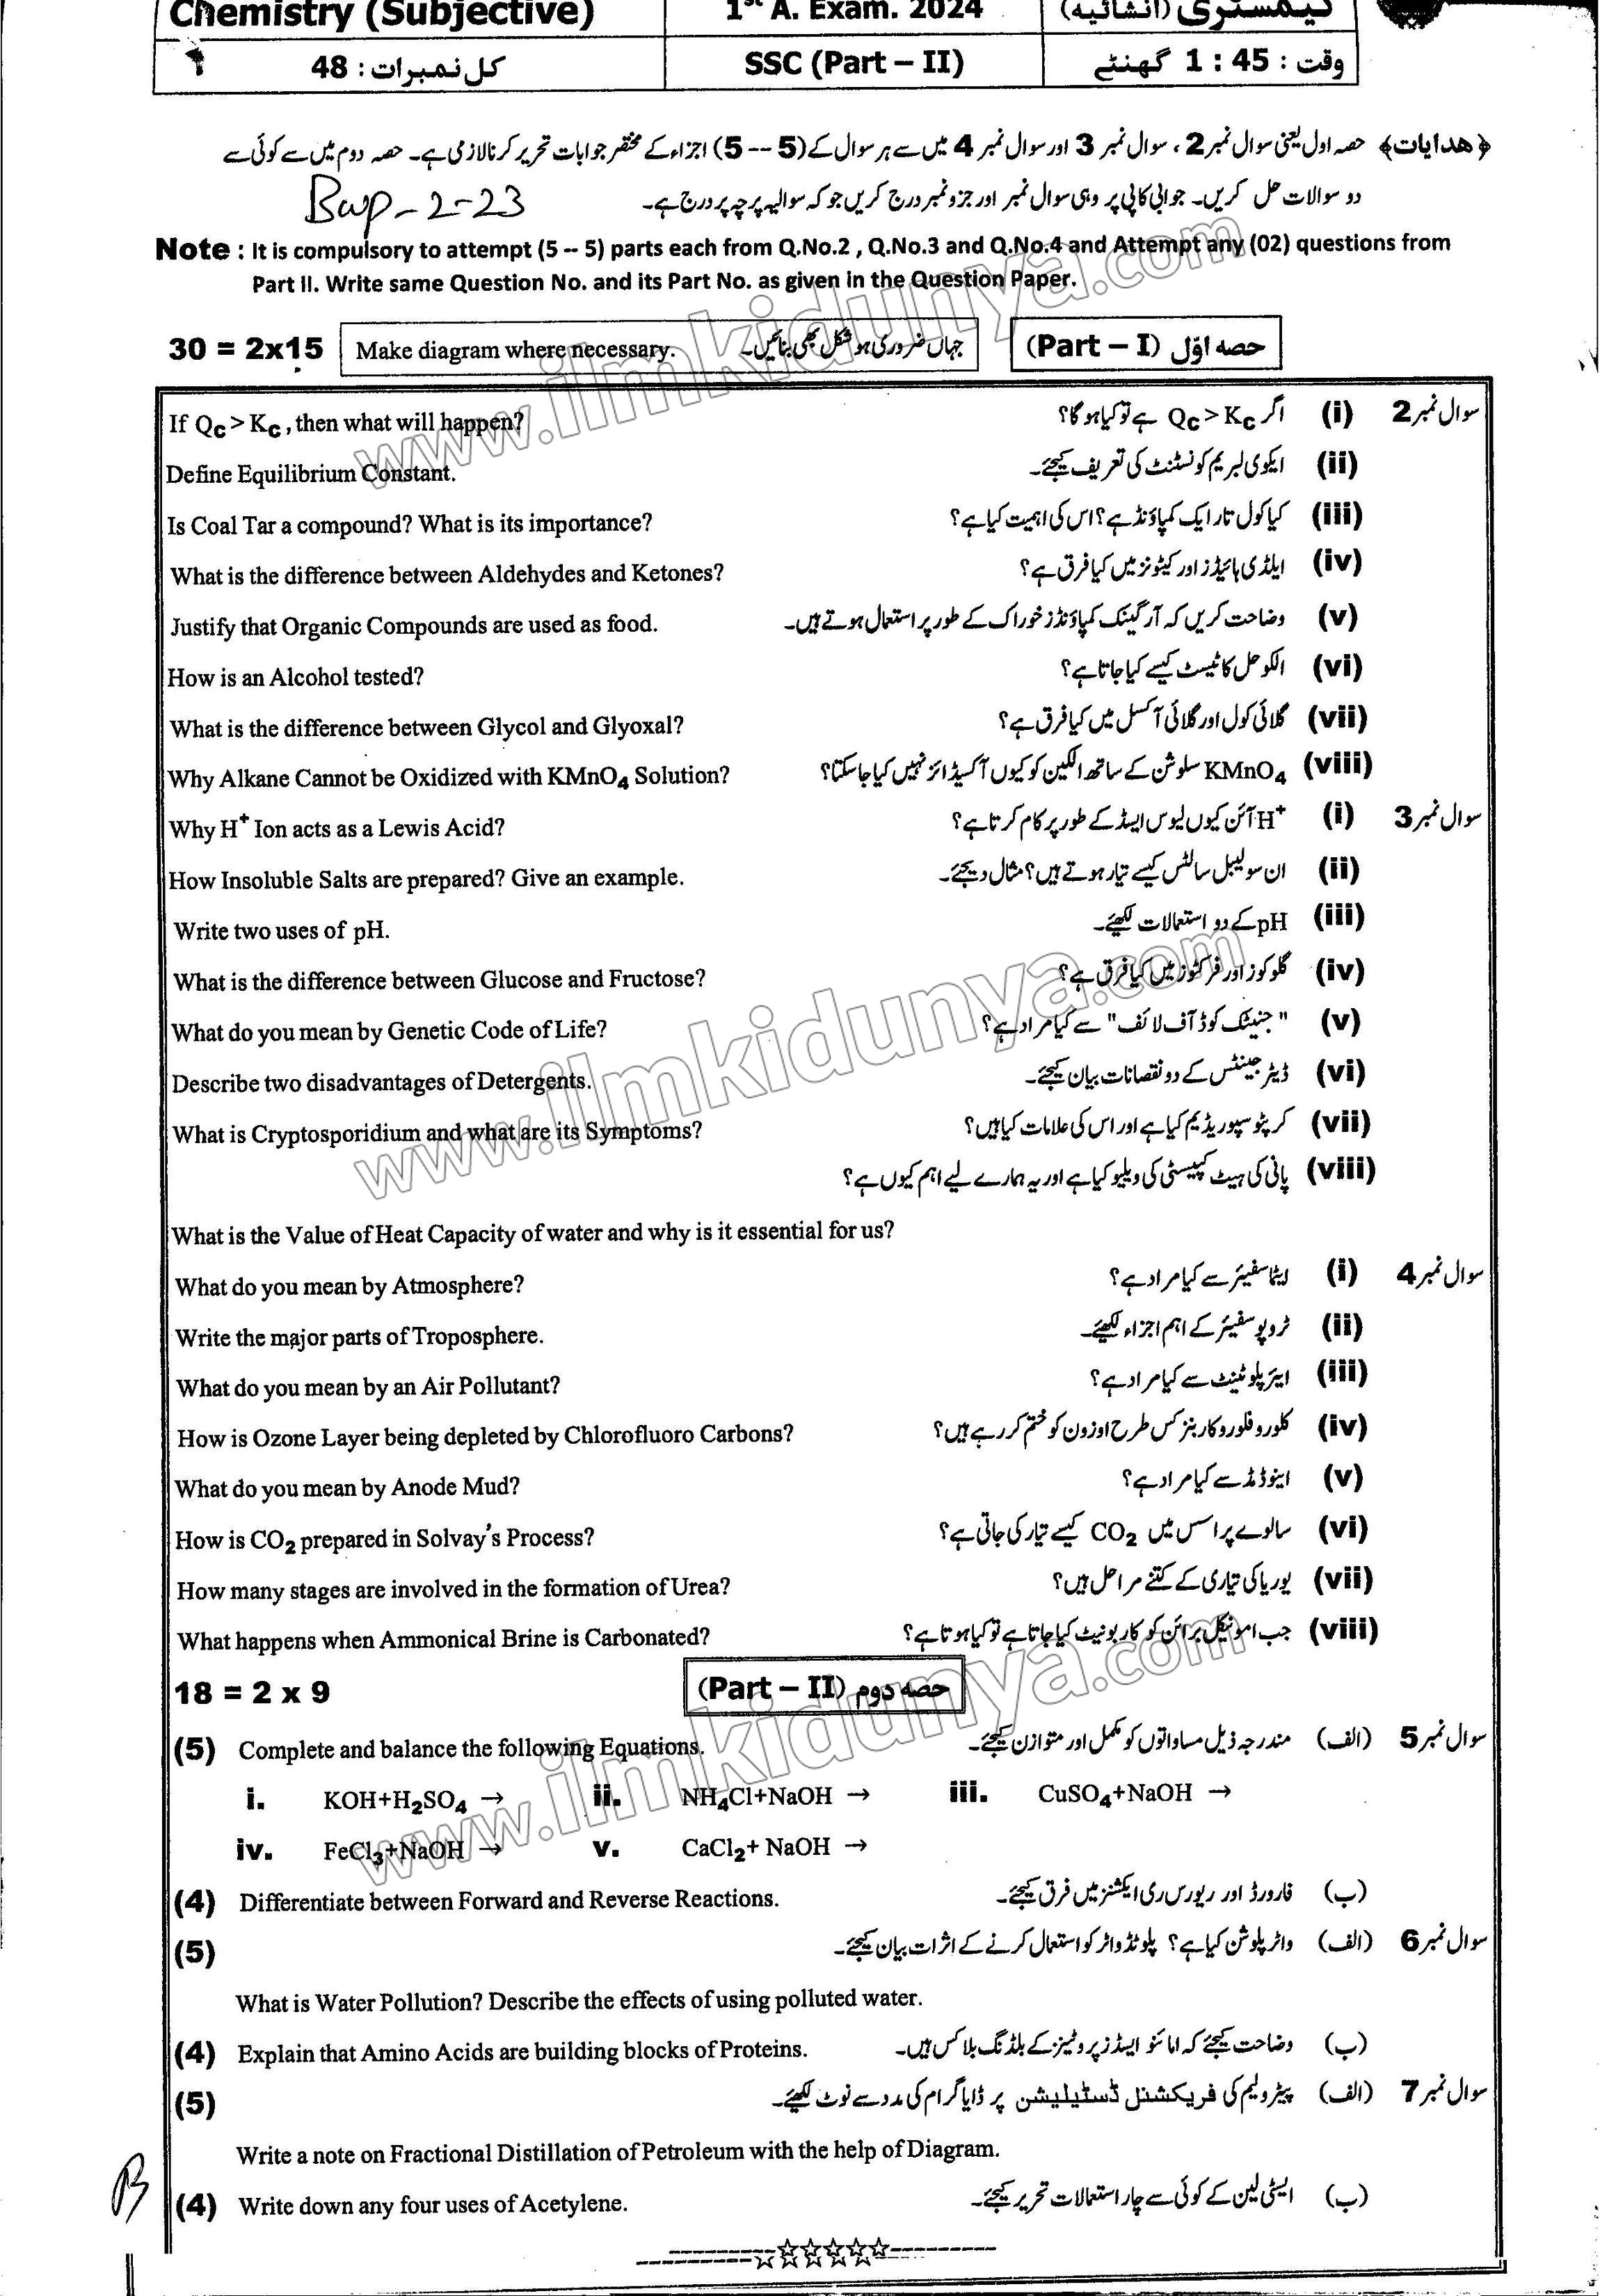 Chemistry (Subjective) 1st A. Exam. 2024 کیمسٹری (انشائیہ)
کل نمبرات : 48 SSC (Part – II) وقت : 45 : 1 گھنٹے
﴿ھدایات﴾ حصہ اول یعنی سوال نمبر 2 ، سوال نمبر 3 اور سوال نمبر 4 میں سے ہر سوال کے (5 -- 5) اجزاء کے مختصر جوابات تحریر کرنا لازمی ہے۔ حصہ دوم میں سے کوئی سے
دو سوالات حل کریں۔ جوابی کاپی پر وہی سوال نمبر اور جزو نمبر درج کریں جو کہ سوالیہ پرچہ پر درج ہے۔
Bwp-2-23
Note : It is compulsory to attempt (5 -- 5) parts each from Q.No.2 , Q.No.3 and Q.No.4 and Attempt any (02) questions from
Part II. Write same Question No. and its Part No. as given in the Question Paper.
30 = 2x15 Make diagram where necessary. جہاں ضروری ہو شکل بھی بنائیں۔ حصہ اوّل (Part – I)
سوال نمبر 2 (i) اگر Qc > Kc ہے تو کیا ہو گا؟ If Qc > Kc , then what will happen?
(ii) ایکوی لبریم کونسٹنٹ کی تعریف کیجئے۔ Define Equilibrium Constant.
(iii) کیا کول تار ایک کمپاؤنڈ ہے؟ اس کی اہمیت کیا ہے؟ Is Coal Tar a compound? What is its importance?
(iv) ایلڈی ہائیڈز اور کیٹونز میں کیا فرق ہے؟ What is the difference between Aldehydes and Ketones?
(v) وضاحت کریں کہ آرگینک کمپاؤنڈز خوراک کے طور پر استعمال ہوتے ہیں۔ Justify that Organic Compounds are used as food.
(vi) الکوحل کا ٹیسٹ کیسے کیا جاتا ہے؟ How is an Alcohol tested?
(vii) گلائی کول اور گلائی آکسل میں کیا فرق ہے؟ What is the difference between Glycol and Glyoxal?
(viii) KMnO4 سلوشن کے ساتھ الکین کو کیوں آکسیڈائز نہیں کیا جا سکتا؟ Why Alkane Cannot be Oxidized with KMnO4 Solution?
سوال نمبر 3 (i) H+ آئن کیوں لیوس ایسڈ کے طور پر کام کرتا ہے؟ Why H+ Ion acts as a Lewis Acid?
(ii) ان سولیبل سالٹس کیسے تیار ہوتے ہیں؟ مثال دیجئے۔ How Insoluble Salts are prepared? Give an example.
(iii) pH کے دو استعمالات لکھیئے۔ Write two uses of pH.
(iv) گلوکوز اور فرکٹوز میں کیا فرق ہے؟ What is the difference between Glucose and Fructose?
(v) "جنیٹک کوڈ آف لائف" سے کیا مراد ہے؟ What do you mean by Genetic Code of Life?
(vi) ڈیٹرجینٹس کے دو نقصانات بیان کیجئے۔ Describe two disadvantages of Detergents.
(vii) کرپٹوسپوریڈیم کیا ہے اور اس کی علامات کیا ہیں؟ What is Cryptosporidium and what are its Symptoms?
(viii) پانی کی ہیٹ کپیسٹی کی ویلیو کیا ہے اور یہ ہمارے لیے اہم کیوں ہے؟
What is the Value of Heat Capacity of water and why is it essential for us?
سوال نمبر 4 (i) ایٹماسفیئر سے کیا مراد ہے؟ What do you mean by Atmosphere?
(ii) ٹروپوسفیئر کے اہم اجزاء لکھیئے۔ Write the major parts of Troposphere.
(iii) ایئر پلوٹینٹ سے کیا مراد ہے؟ What do you mean by an Air Pollutant?
(iv) کلوروفلوروکاربنز کس طرح اوزون کو ختم کر رہے ہیں؟ How is Ozone Layer being depleted by Chlorofluoro Carbons?
(v) اینوڈ مڈ سے کیا مراد ہے؟ What do you mean by Anode Mud?
(vi) سالوے پراسس میں CO2 کیسے تیار کی جاتی ہے؟ How is CO2 prepared in Solvay's Process?
(vii) یوریا کی تیاری کے کتنے مراحل ہیں؟ How many stages are involved in the formation of Urea?
(viii) جب امونیکل برائن کو کاربونیٹ کیا جاتا ہے تو کیا ہوتا ہے؟ What happens when Ammonical Brine is Carbonated?
18 = 2 x 9 حصہ دوم (Part – II)
سوال نمبر 5 (الف) مندرجہ ذیل مساواتوں کو مکمل اور متوازن کیجئے۔ Complete and balance the following Equations. (5)
i. KOH+H2SO4 → ii. NH4Cl+NaOH → iii. CuSO4+NaOH →
iv. FeCl3+NaOH → v. CaCl2+ NaOH →
(ب) فارورڈ اور ریورس ری ایکشنز میں فرق کیجئے۔ Differentiate between Forward and Reverse Reactions. (4)
سوال نمبر 6 (الف) واٹر پلوشن کیا ہے؟ پلوٹڈ واٹر کو استعمال کرنے کے اثرات بیان کیجئے۔ (5)
What is Water Pollution? Describe the effects of using polluted water.
(ب) وضاحت کیجئے کہ امائنو ایسڈز پروٹینز کے بلڈنگ بلاکس ہیں۔ Explain that Amino Acids are building blocks of Proteins. (4)
سوال نمبر 7 (الف) پیٹرولیم کی فریکشنل ڈسٹیلیشن پر ڈایاگرام کی مدد سے نوٹ لکھیئے۔ (5)
Write a note on Fractional Distillation of Petroleum with the help of Diagram.
(ب) ایسٹی لین کے کوئی سے چار استعمالات تحریر کیجئے۔ Write down any four uses of Acetylene. (4)
www.ilmkidunya.com
www.ilmkidunya.com
www.ilmkidunya.com